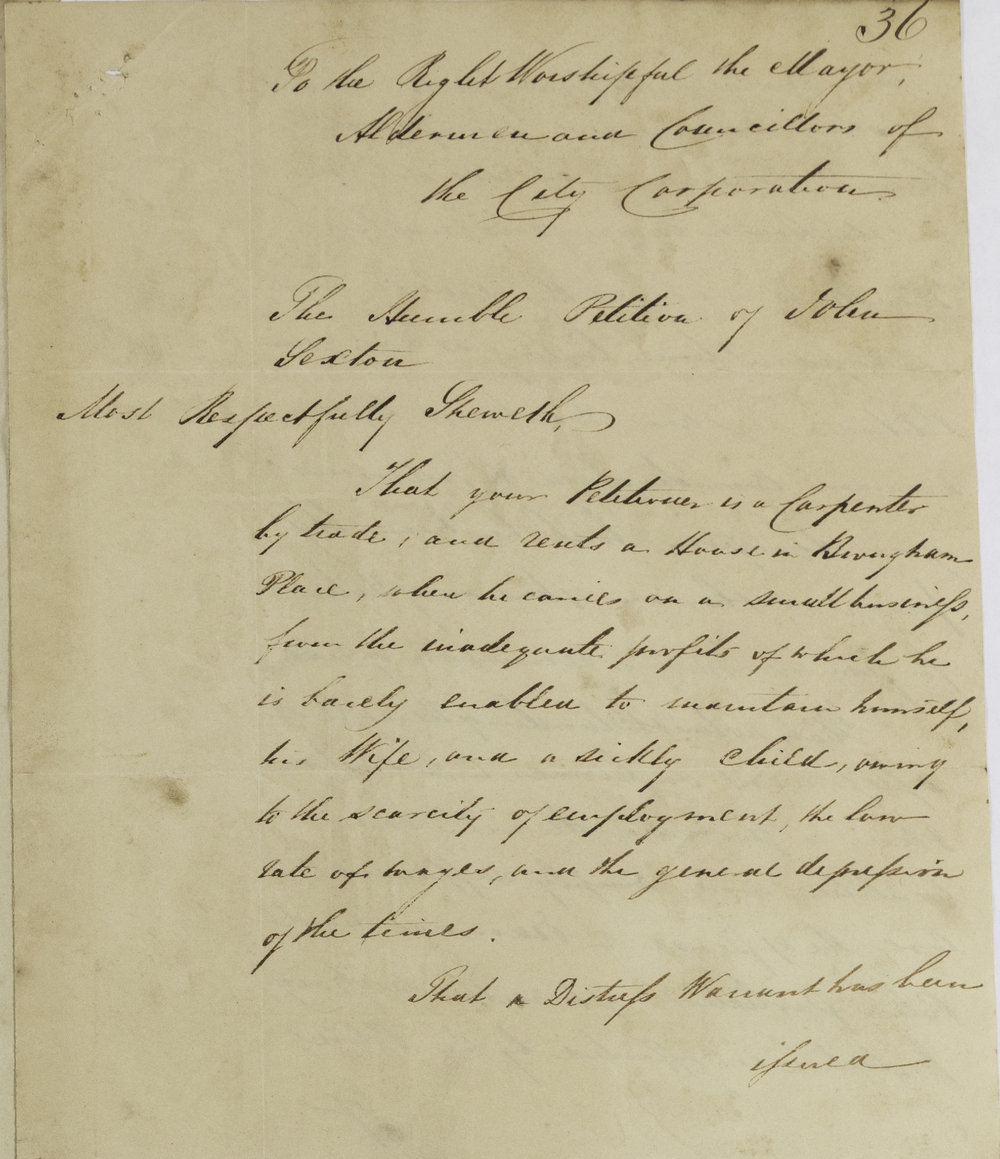 36
To the Right Worshipful the Mayor,
Aldermen and Councillors of
the City Corporation
The Humble Petition of John
Sexton
Most Respectfully Sheweth,
That your Petitioner is a Carpenter
by trade, and rents a House in Brougham
Place, where he carries on a small business,
from the inadequate profits of which he
is barely enabled to maintain himself,
his Wife, and a sickly child, owing
to the scarcity of employment, the low
rate of wages, and the general depression
of the times.
That a Distress Warrant has been
issued